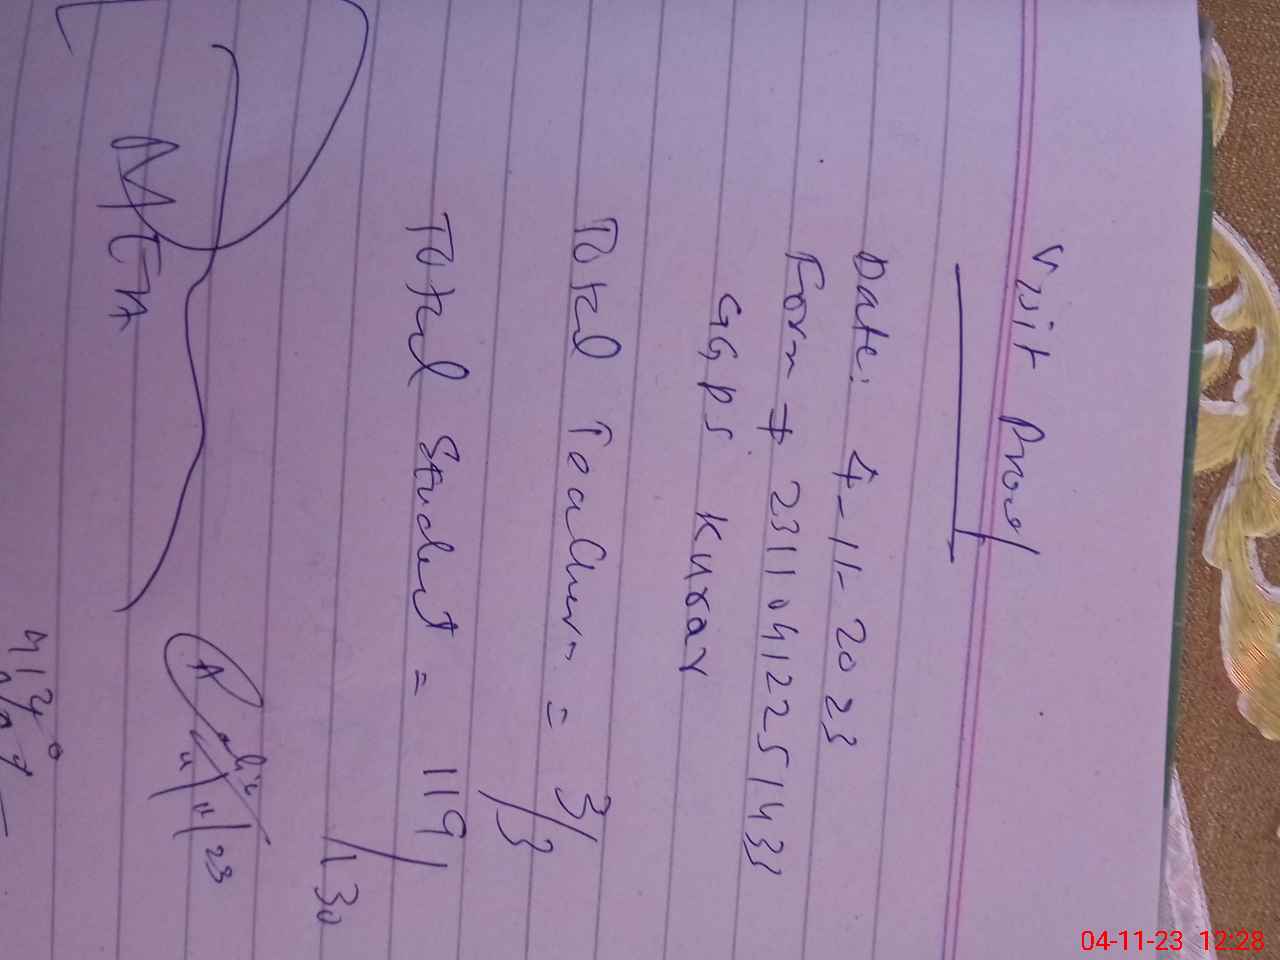 Visit Proof
Date: 4-11-2023
Form # 231104122251433
GGPS Kurar
Total Teachers = 3/3
Total Student = 119/130
MEA
4/11/23
04-11-23 12:28